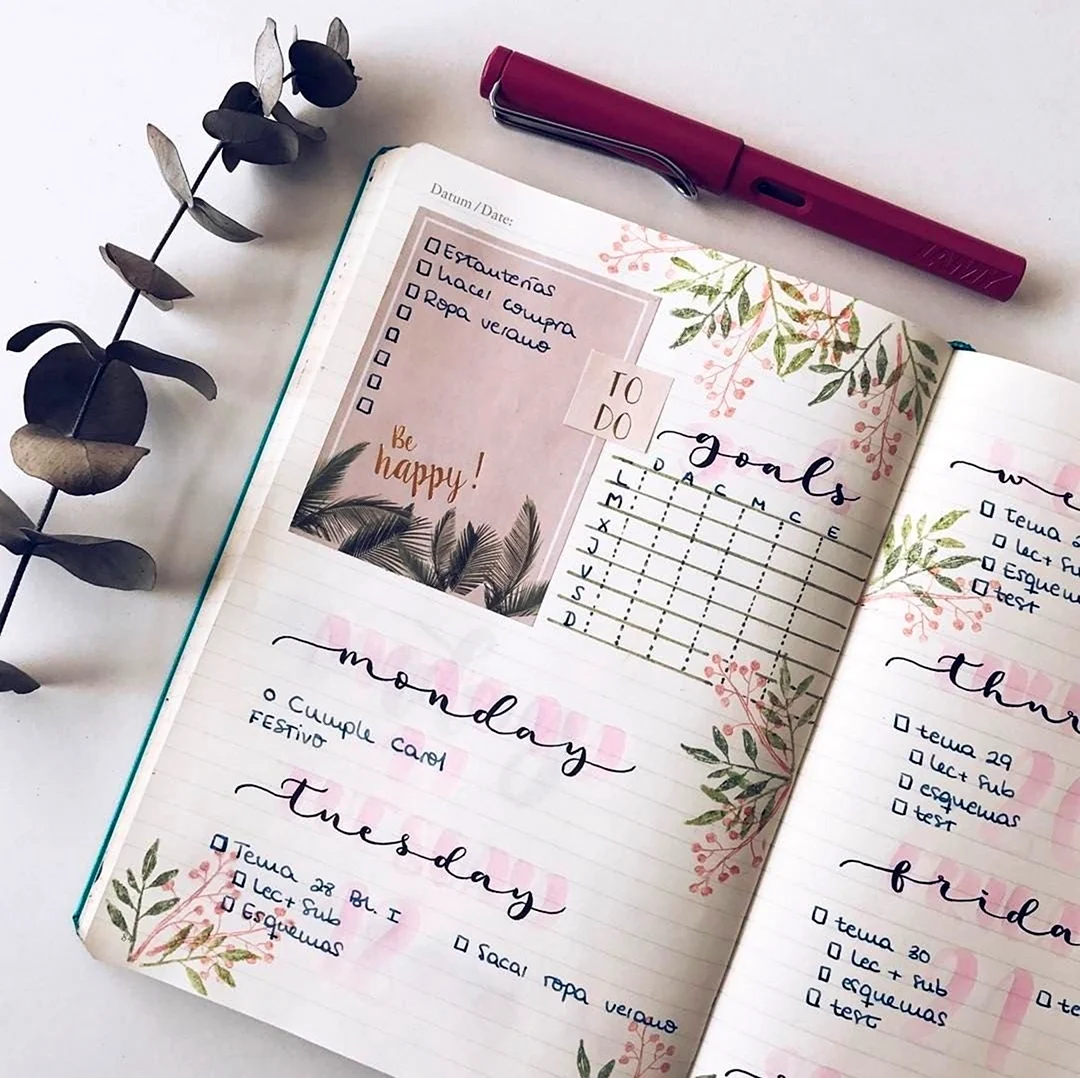 LAMY
Datum / Date:
Estanterías
hacer compra
Ropa verano
TO
DO
Be
happy!
goals
D A C M C E
L
M
X
J
V
S
D
monday
o Cumple Carol
FESTIVO
tuesday
Tema 28 Bl. I
Lec + Sub
Esquemas
Sacar ropa verano
we
tema
lec + su
Esquem
test
thur
tema 29
lec + sub
esquemas
test
frida
21
tema 30
lec + sub
esquemas
test
te